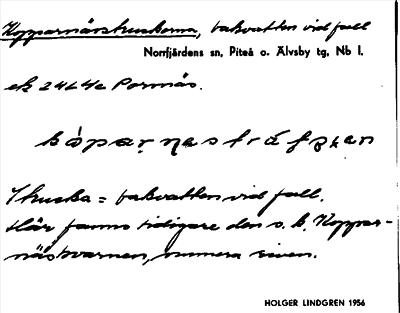 Kopparnässtruskorna, bakvatten vid fall
Norrfjärdens sn, Piteå o. Älvsby tg, Nb l.
ek 24L4c Pornäs.
Struska = bakvatten vid fall.
Här fanns tidigare den s. k. Koppar-
näskvarnen, numera riven.
HOLGER LINDGREN 1956